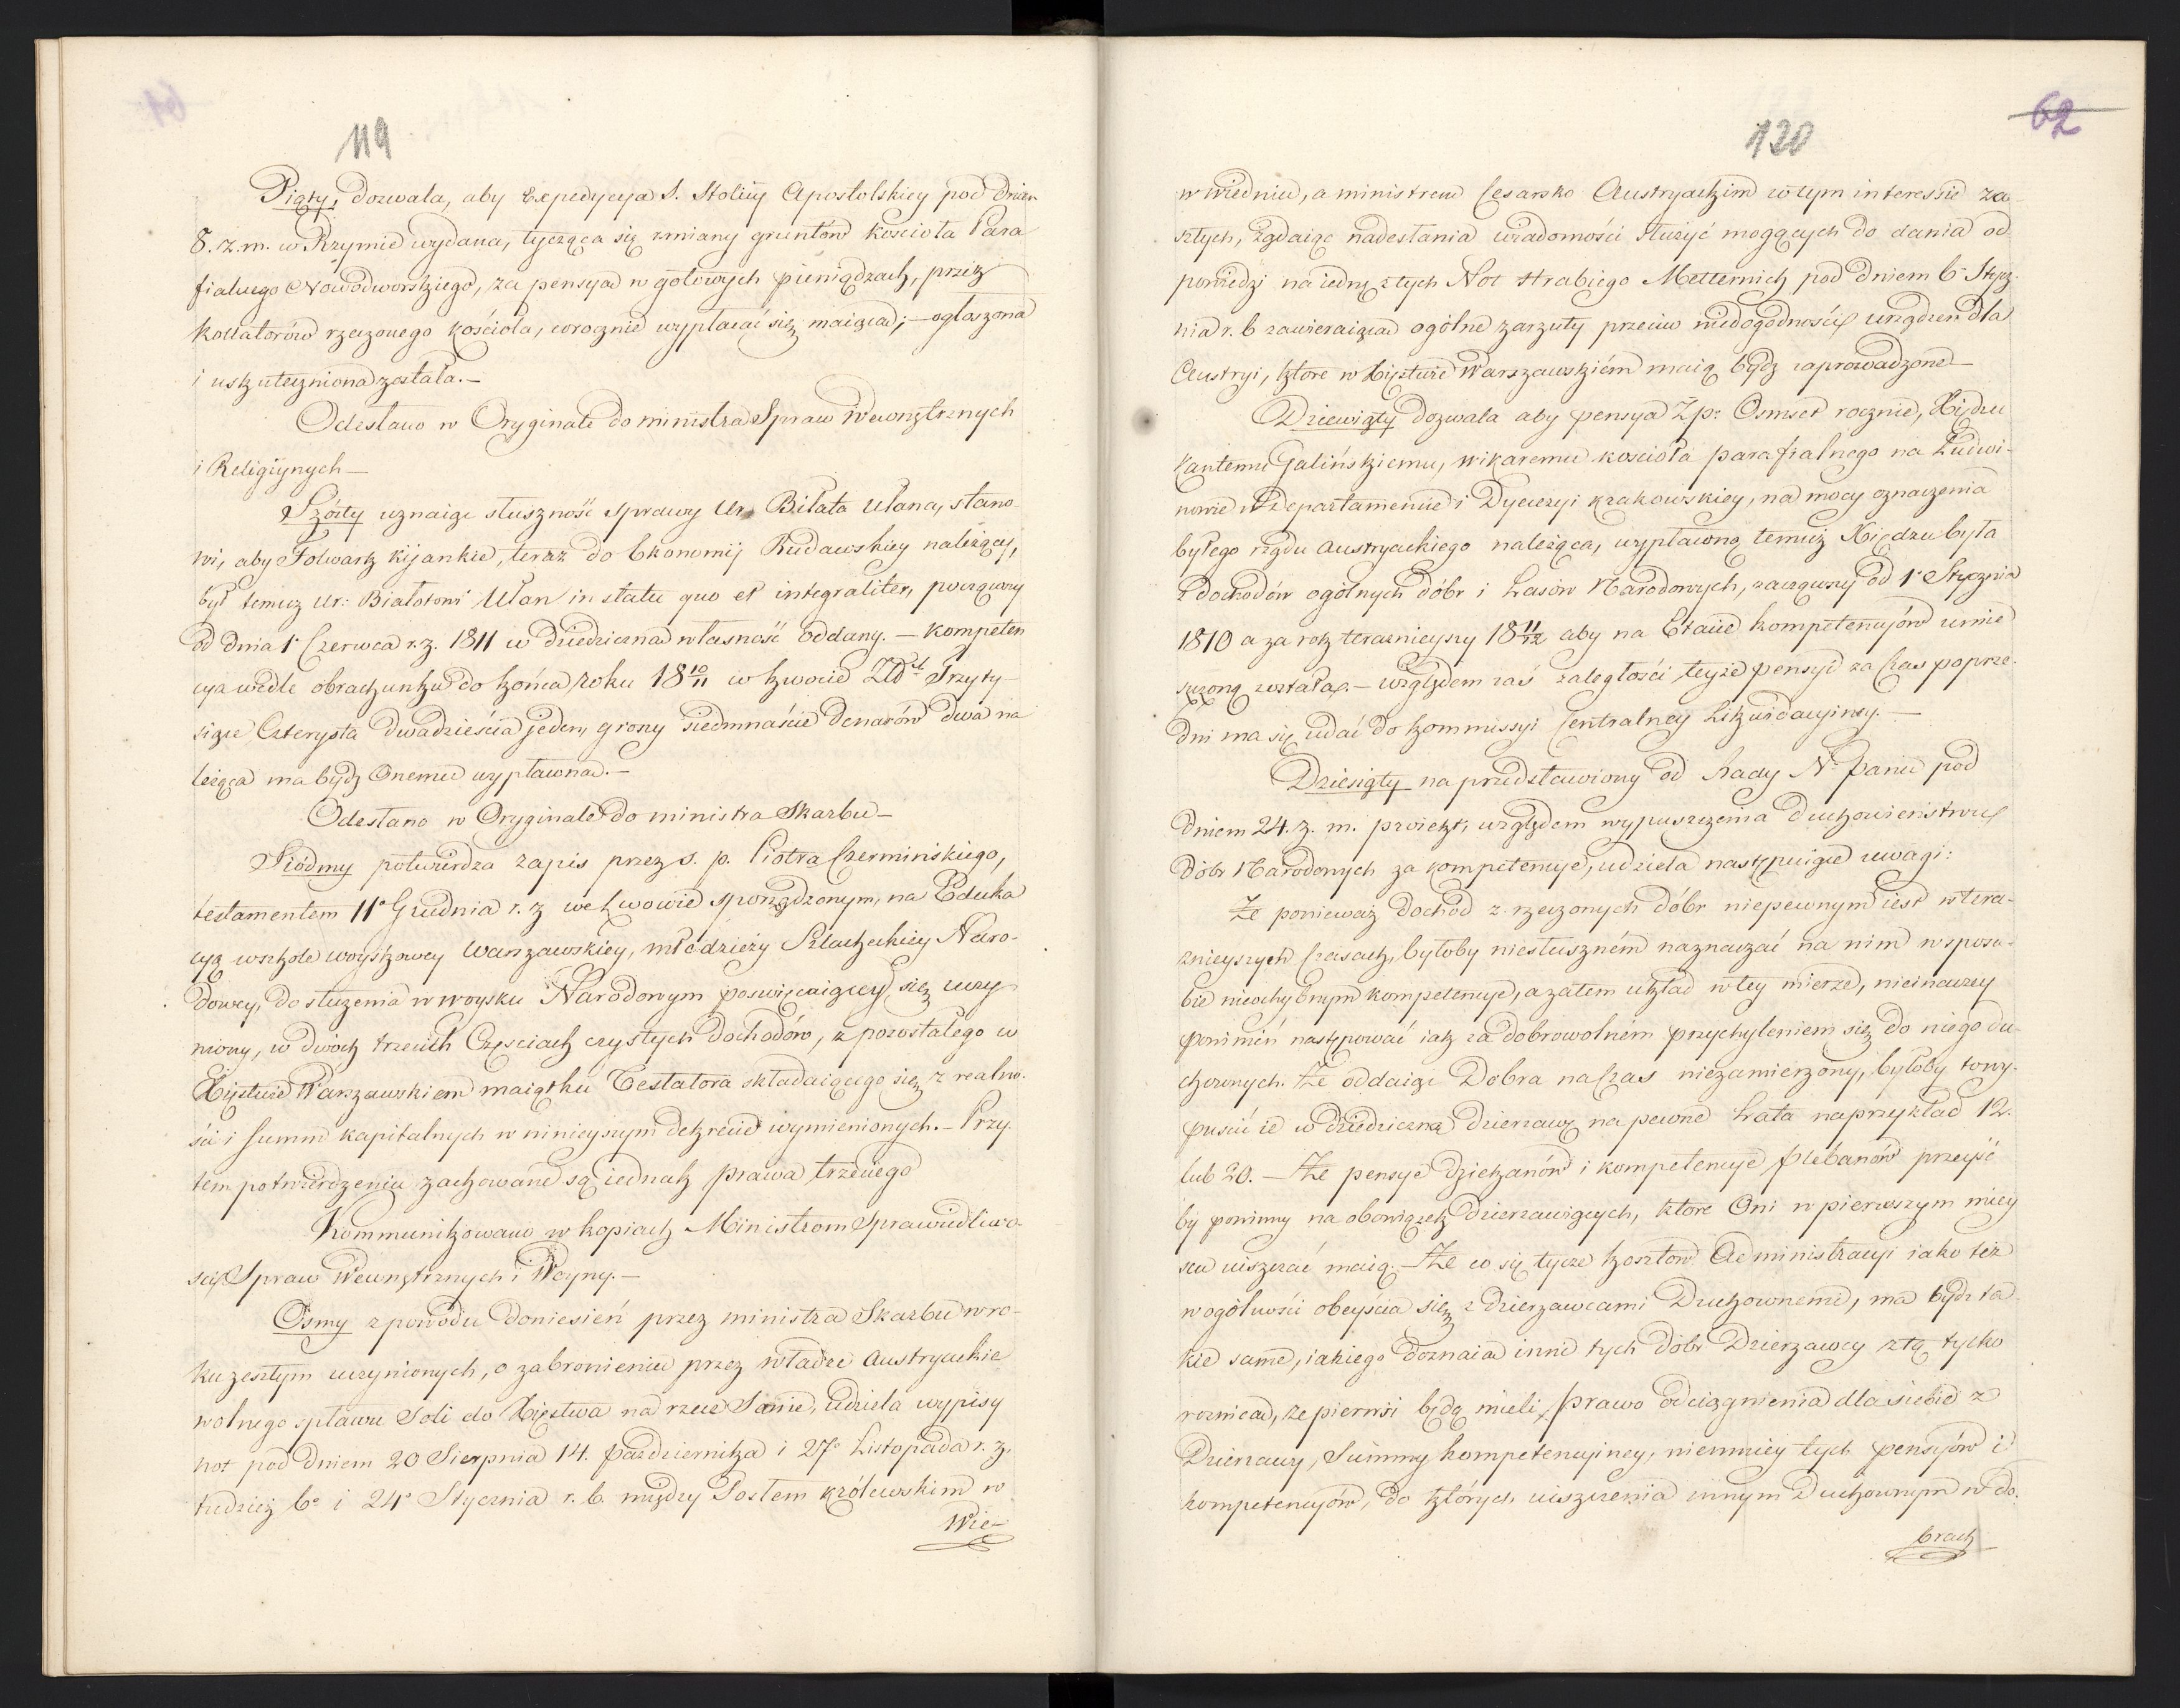 119
Piąty, dozwala, aby Expedycya S. Stolicy Apostolskiey pod dniem
8. z. m. w Rzymie wydana, tycząca się zmiany gruntów kościoła Para
fialnego Nowodworskiego, za pensyą w gotowych pieniądzach, przez
kollatorów rzeczonego kościoła, corocznie wypłacać się maiąca; — ogłoszona
i uskuteczniona została. —
Odesłano w Oryginale do ministra Spraw Wewnętrznych
i Religiynych —
Szósty uznaiąc słuszność sprawy Ur. Biłata Ułana, stano-
wi, aby Folwark Kijanki, teraz do Ekonomij Rudawskiey należący,
był temuż Ur: Białotowi Ułan in statu quo et integraliter, począwszy
od dnia 1° Czerwca r. z. 1811 w dziedziczną własność oddany. — Kompeten
cya wedle obrachunku do końca roku 18 10/11 w kwocie Trzy ty-
siące Czterysta dwadzieścia jeden, groszy siedmnaście denarów dwa na
leżąca ma bydź Onemu wypłacona. —
Odesłano w Oryginale do ministra Skarbu —
Siódmy potwierdza zapis przez s. p. Piotra Czermińskiego,
testamentem 11° Grudnia r. z we Lwowie sporządzonym, na Eduka
cyą w szkole woyskowey Warszawskiey, młodzieży Szlacheckiey Naro-
dowey, do służenia w woysku Narodowym poswięcaiącey się uczy-
niony, w dwóch trzecich Częsciach czystych dochodów, z pozostałego w
Xięstwie Warszawskiem maiątku Testatora składaiącego się z realno-
ści i Summ kapitalnych w ninieyszym dekrecie wymienionych. — Przy
tem potwierdzeniu zachowane są iednak prawa trzeciego
Kommunikowano w kopiach Ministrom Sprawiedliwo-
ści Spraw Wewnętrznych i Woyny. —
Osmy z powodu doniesień przez ministra Skarbu w ro-
ku zeszłym uczynionych, o zabronieniu przez władze Austryackie
wolnego spławu Soli do Xięstwa na rzece Sanie, udziela wypisy
not pod dniem 20 Sierpnia 14. Października i 27° Listopada r. z.
tudzież 6° i 24° Stycznia r. b. między Posłem królewskim w
Wie-
120
62
w Wiedniu, a ministrem Cesarsko Austryackim w tym interessie za-
szłych, żądaiąc nadesłania wiadomości służyć mogących do dania od-
powiedzi na iednę z tych Not Hrabiego Metternich pod dniem 6° Stycz-
nia r. b zawieraiącą ogólne zarzuty przeciw niedogodności urządzeń dla
Austryi, które w Xięstwie Warszawskiém maią bydź zaprowadzone —
Dziewiąty dozwala aby pensya Zp: Osmset rocznie, Xiędzu
Kantemu Galińskiemu, wikaremu kościoła parafialnego na Ludwi-
nowie w Departamencie i Dyecezyi krakowskiey, na mocy oznaczenia
byłego rządu Austryackiego należąca, wypłacona temuż Xiędzu była
z dochodów ogólnych dóbr i Lasów Narodowych, zacząwszy od 1° Stycznia
1810 a za rok teraznieyszy 18 11/12 aby na Etacie kompetencyów umie
szczoną została. — względem zaś zaległości teyże pensyi za Czas poprze-
dni ma się udać do kommissyi Centralney Likwidacyiney. —
Dziesiąty na przedstawiony od Rady N. Panu pod
dniem 24. z. m. proiekt, względem wypuszczenia duchowieństwu
dóbr Narodowych za kompetencye, udziela następuiące uwagi:
Że ponieważ dochód z rzeczonych dóbr niepewnym iest w tera-
znieyszych Czasach, byłoby niesłuszném naznaczać na nim w sposo-
bie nieochybnym kompetencye, a zatem układ w tey mierze, nieinaczey
powinien następować iak za dobrowolném przychyleniem się do niego du-
chownych. Że oddaiąc Dobra na Czas niezamierzony, byłoby to wy-
puścić ie w dziedziczną dzierzawę na pewne Lata naprzykład 12.
lub 20. — Że pensye dziekanów i kompetencye plebanów przeyść
by powinny na obowiązek dzierzawiących, które Oni w pierwszym miey
scu uiszczać maią. — Że co się tycze kosztów Administracyi iako też
w ogólności obeyścia się z dzierzawcami Duchownemi, ma bydź ta-
kie same, iakiego doznaią inni tych dóbr Dzierzawcy z tą tylko
roznicą, że pierwsi będą mieli prawo odciągnienia dla siebie z
Dzierzawy, Summy kompetencyiney, niemniey tych pensyów i
kompetencyów, do których uiszczenia innym Duchownym w do-
brach